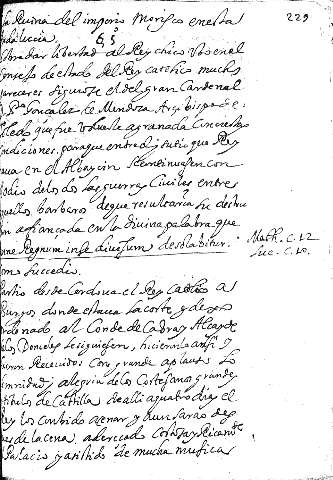 la Ruina del imperio Morisco en esta
Andalucia.
Sobre dar libertad al Rey chico Vbo en el
Consejo de estado del Rey catolico muchos
pareceres siguiose el del gran Cardenal
D. P.º Gonzalez de Mendoza Arçobispo de
Toledo que fue volviese a granada Con ciertas
condiciones, para que entre el y su tio que Rey
naua en el Albaycin se continuasen con
odio de los dos las guerras Ciuiles entre
aquellos barbaros de que resultaria su destrui
cion afiancada en la diuina palabra que
omne Regnum in se diuisum desolabitur.
229
Math. C. 12
Luc. C.
succedio.
Partio desde Cordoua el Rey catolico a
Burgos donde estaua la corte y
ordenado al Conde de Cabra y Alcayde
de los Donceles le siguiesen, hicieronlo ansi y
fueron Receuidos Con grande aplauso So
lemnidad y alegria de los Cortesanos grandes
y titulos de Castilla
Rey los combido a cenar y hubo sarao des
pues de la cena,
Palacio y asistido de mucha musica